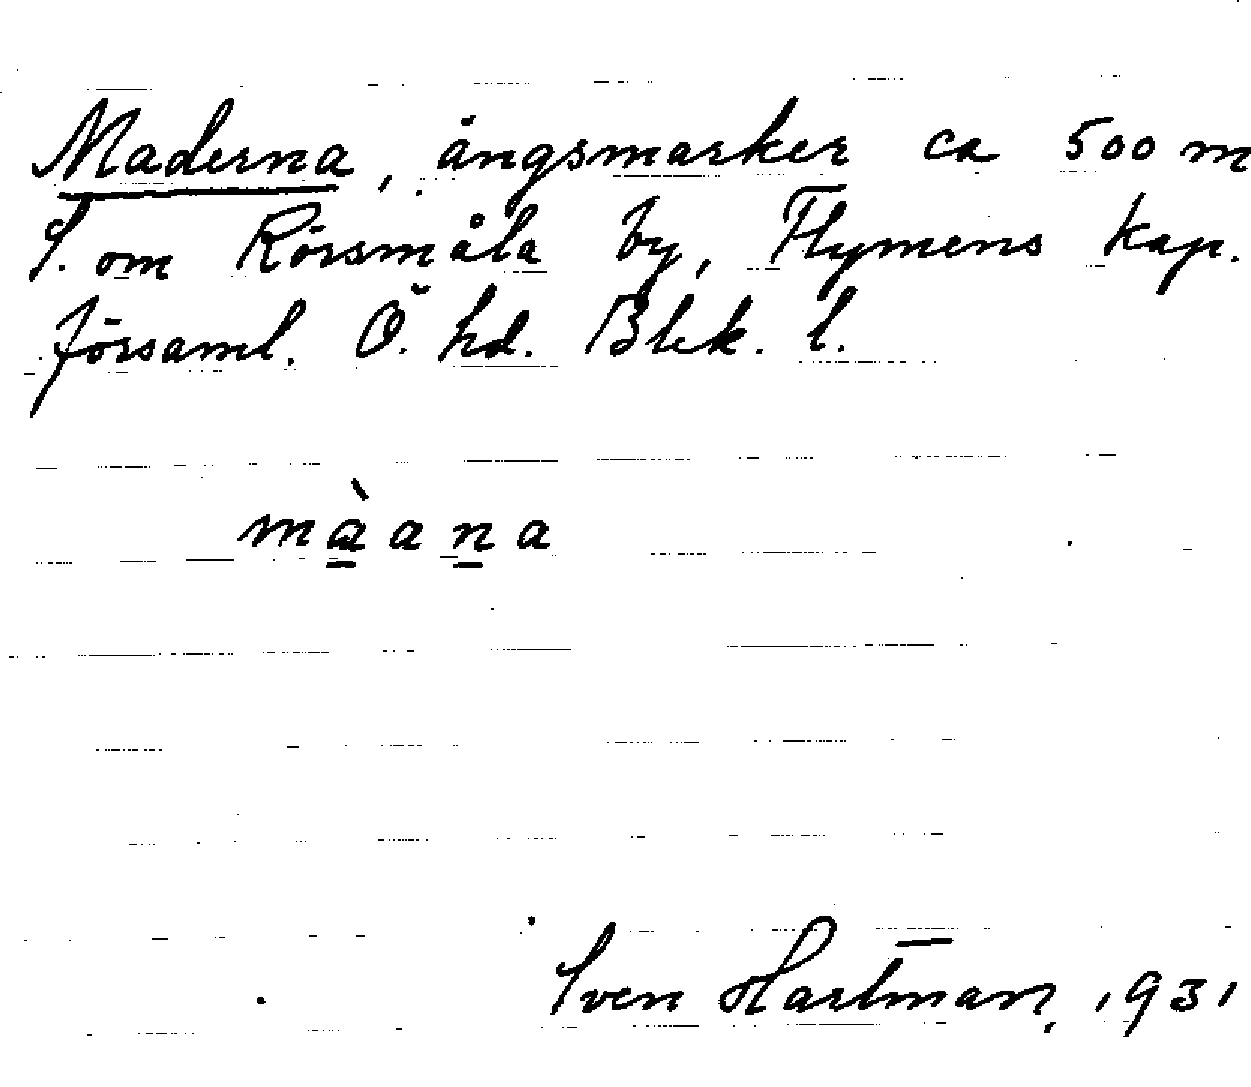 Maderna, ängsmarker ca 500 m
S. om Rörsmåla by, Flymens kap.
församl. Ö. hd. Blek. l.
màana
Sven Hartman, 1931